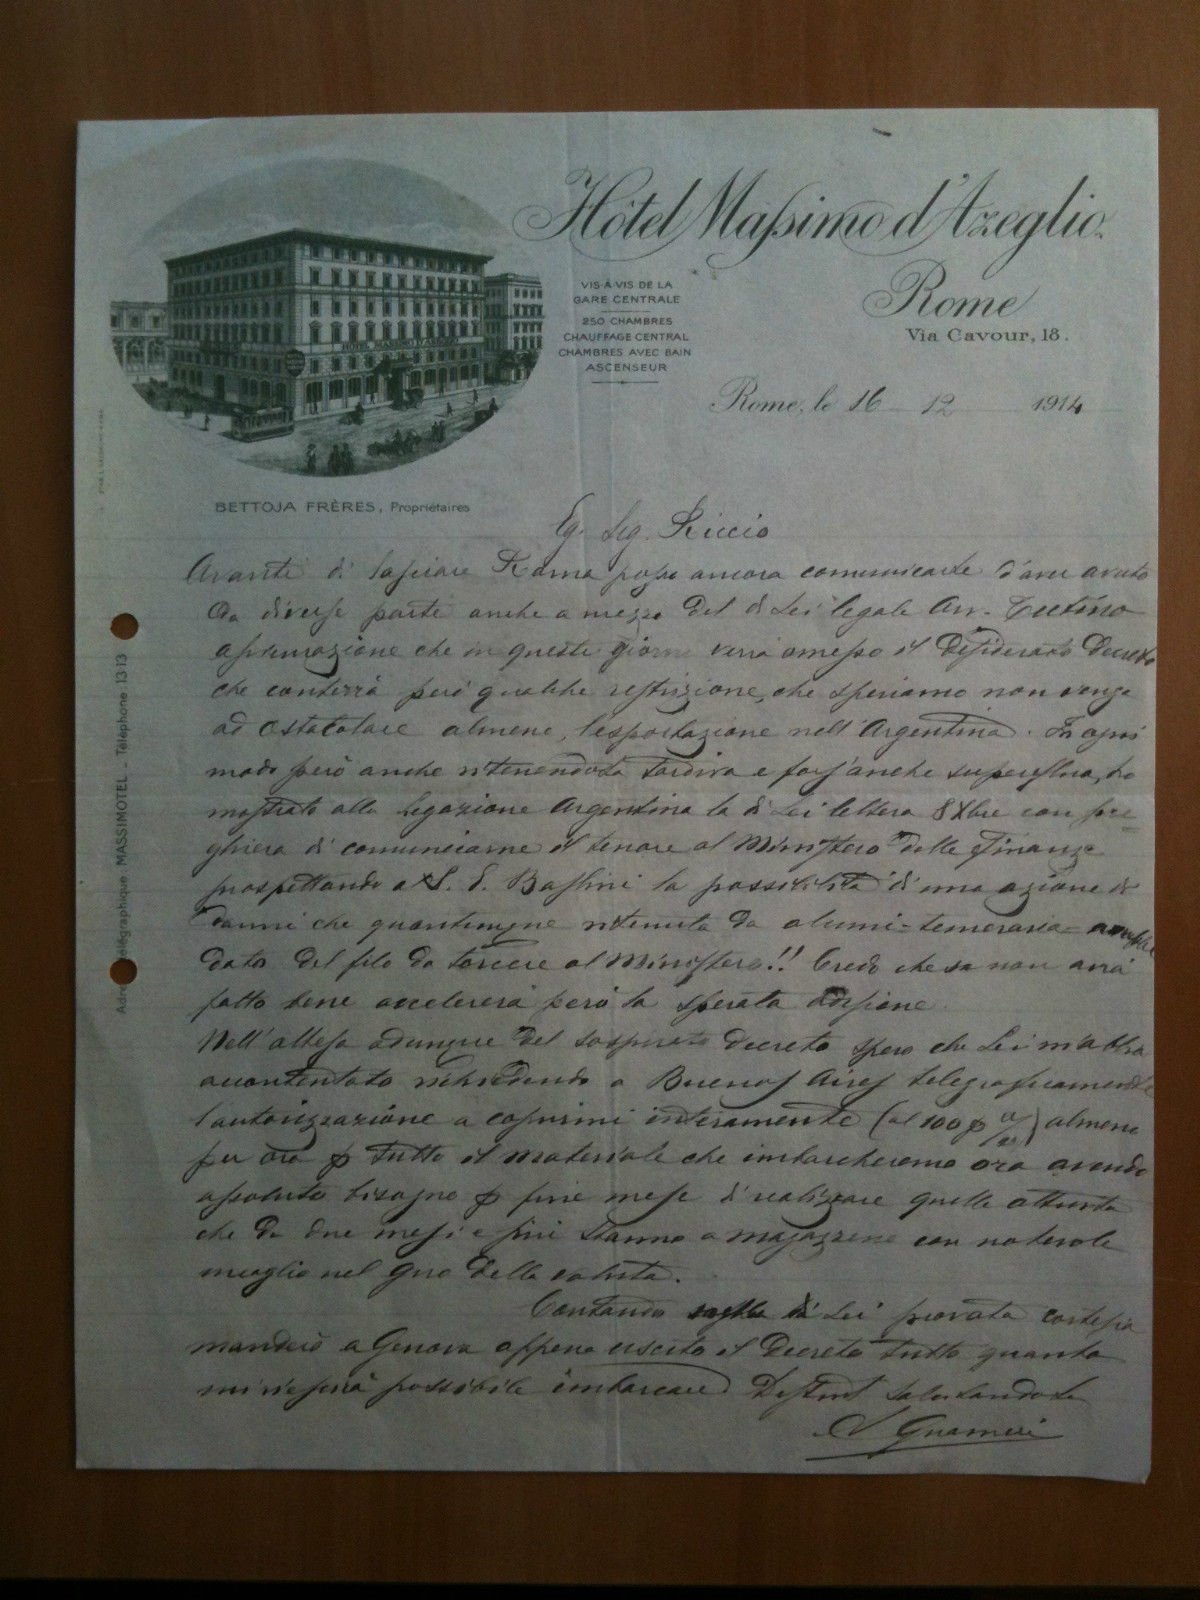 Hôtel Massimo d'Azeglio.
Rome
Via Cavour, 18.
VIS-À-VIS DE LA
GARE CENTRALE
250 CHAMBRES
CHAUFFAGE CENTRAL
CHAMBRES AVEC BAIN
ASCENSEUR
HÔTEL MASSIMO D'AZEGLIO
BETTOJA FRÈRES, Propriétaires
Rome, le 16 12 1914
Adresse télégraphique MASSIMOTEL _ Téléphone 13 13
Eg. Sig. Riccio
Avanti di lasciare Roma posso ancora comunicarle d'aver avuto
da diverse parte anche a mezzo del di Lei legale Avv.
assicurazione che in questi giorni verrà emesso il desiderato Decreto
che conterrà però qualche restrizione, che speriamo non venga
ad ostacolare almeno, l'esportazione nell'Argentina. In ogni
modo però anche ritenendola tardiva e fors'anche superflua, ho
mostrato alla Legazione Argentina la di Lei lettera 8 Xbre con pre=
ghiera di comunicarne il tenore al Ministero delle Finanze
prospettando a S. E. la possibilità di una azione di
danni che quantunque ritenuta da alcuni = temeraria =
dato del filo da torcere al Ministero!! Credo che se non avrà
fatto bene accelererà però la sperata
Nell'attesa adunque del sospirato decreto spero che Lei m'abbia
accontentato richiedendo a Buenos Aires telegraficamente
l'autorizzazione a coprirmi interamente (al 100 p %) almeno
per ora p tutto il materiale che imbarcheremo ora avendo
assoluto bisogno p fine mese di realizzare quelle
che da due mesi e più stanno a magazzeno con notevole
incaglio nel giro della valuta.
Contando sulla di Lei provata cortesia
manderò a Genova appena uscito il Decreto tutto quanto
mi riescirà possibile imbarcare Distint salutandola